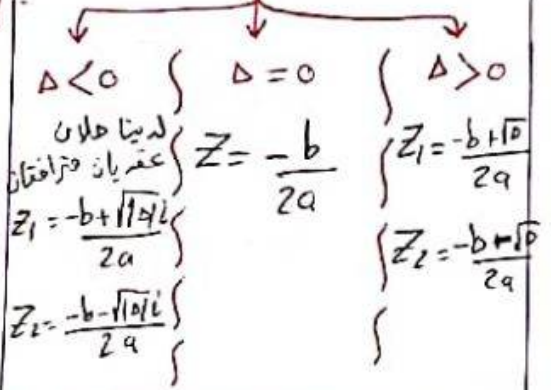 Δ<0
لدينا حلان
عقديان مترافقان
Z₁ = -b+√|Δ| i / 2a
Z₂ = -b-√|Δ| i / 2a
Δ = 0
Z = -b / 2a
Δ>0
Z₁ = -b+√Δ / 2a
Z₂ = -b-√Δ / 2a